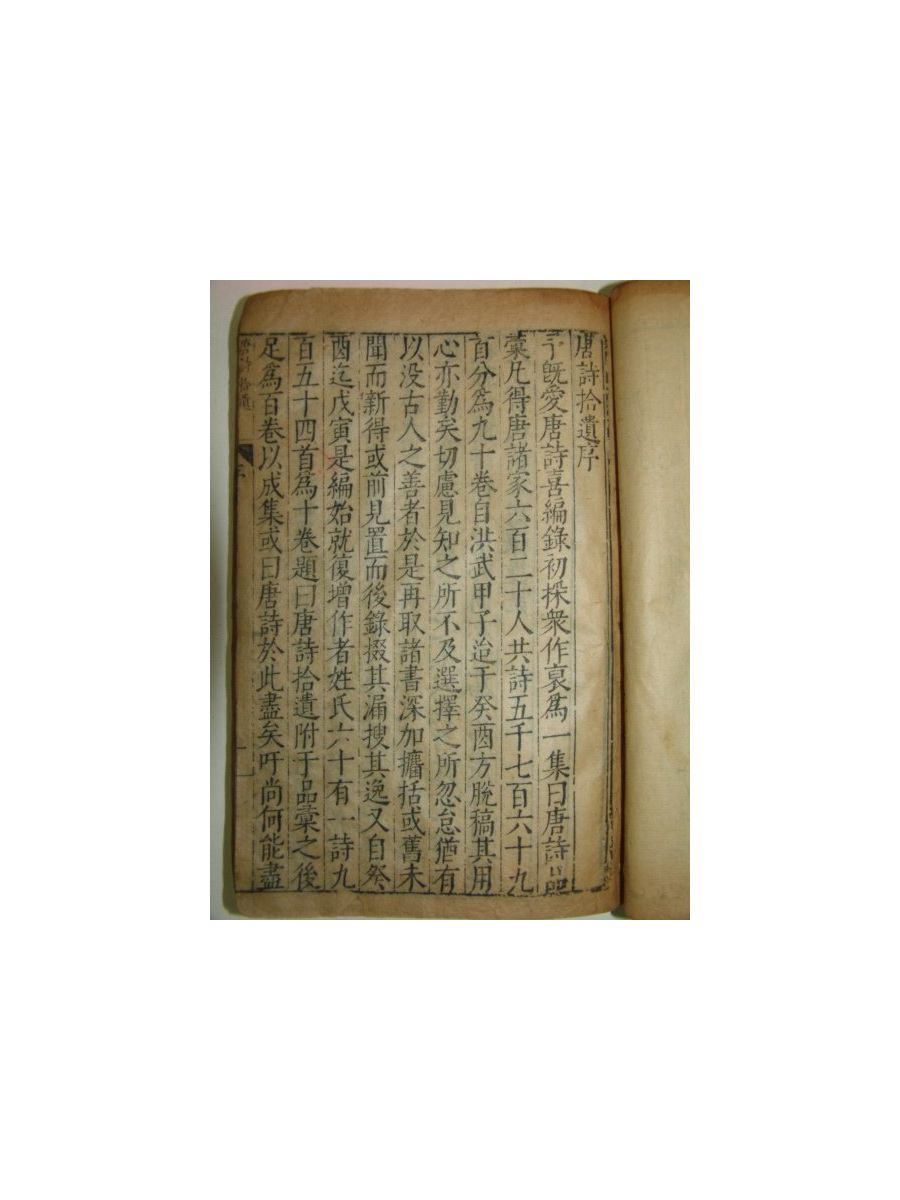 唐詩拾遺序
予旣愛唐詩喜編錄初採衆作裒爲一集曰唐詩品
彙凡得唐諸家六百二十人共詩五千七百六十九
首分爲九十卷自洪武甲子迨于癸酉方脫稿其用
心亦勤矣切慮見知之所不及選擇之所忽怠猶有
以没古人之善者於是再取諸書深加擴括或舊未
聞而新得或前見置而後錄掇其漏搜其逸又自癸
酉迄戊寅是編始就復增作者姓氏六十有一詩九
百五十四首爲十卷題曰唐詩拾遺附于品彙之後
足爲百卷以成集或曰唐詩於此盡矣吁尚何能盡
唐詩拾遺